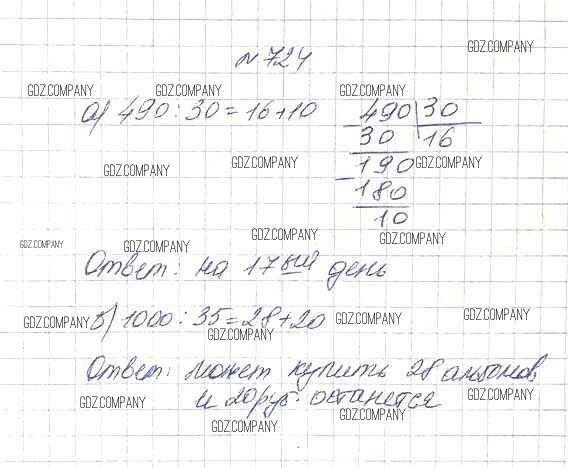 № 724
GDZ.COMPANY
GDZ.COMPANY GDZ.COMPANY GDZ.COMPANY
а) 490 : 30 = 16 + 10
490 30
30 16
190
180
10
GDZ.COMPANY GDZ.COMPANY GDZ.COMPANY
GDZ.COMPANY GDZ.COMPANY GDZ.COMPANY GDZ.COMPANY
Ответ: на 17 ый день
GDZ.COMPANY GDZ.COMPANY GDZ.COMPANY
б) 1000 : 35 = 28 + 20
GDZ.COMPANY
Ответ: может купить 28 альбомов
и 20 руб. останется
GDZ.COMPANY GDZ.COMPANY GDZ.COMPANY
GDZ.COMPANY